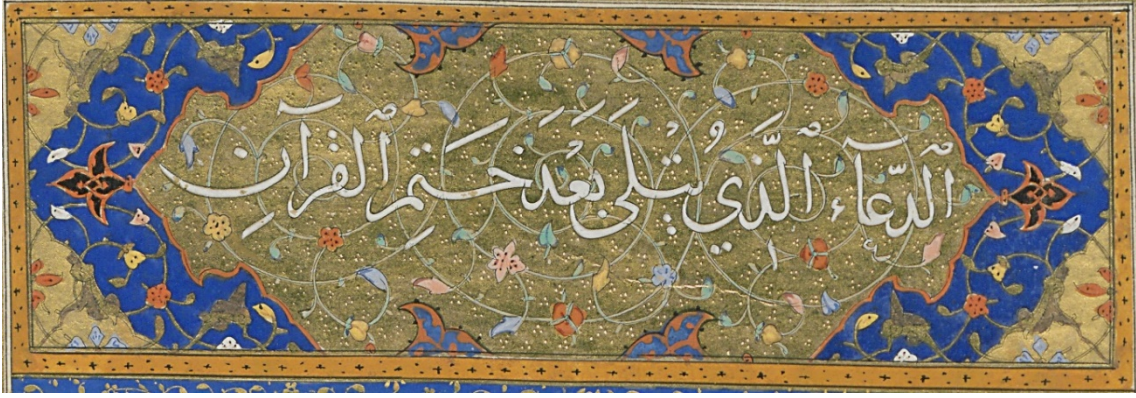 الدُّعَآءُ الَّذِي يُتْلَى بَعْدَ خَتْمِ الْقُرْآنِ